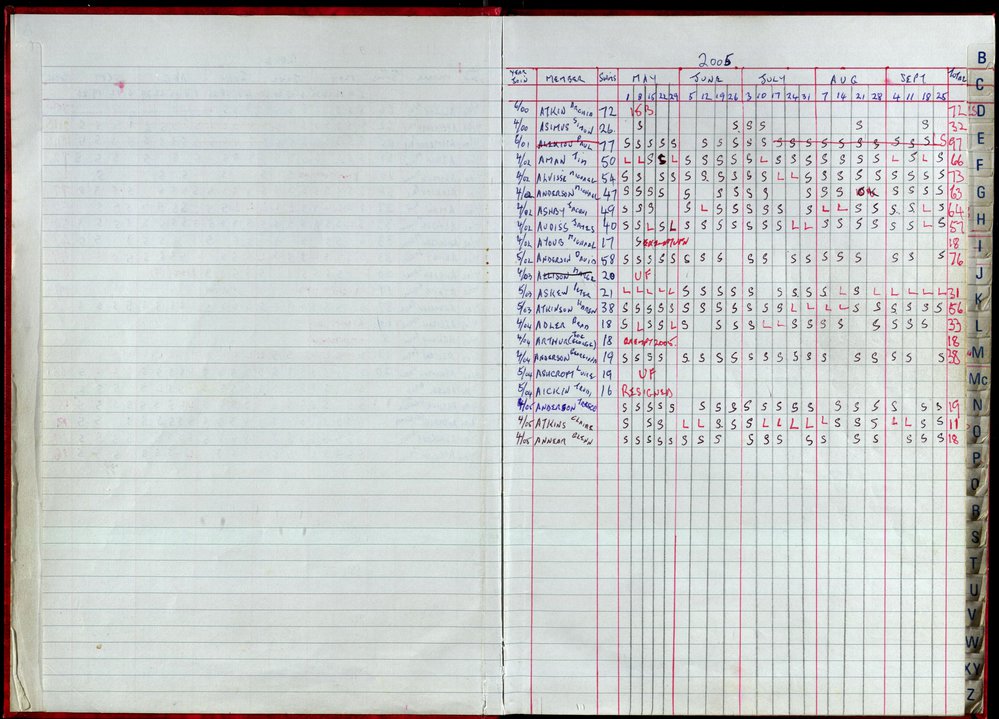 2005
YEAR JOIN MEMBER SWIMS MAY JUNE JULY AUG SEPT TOTAL
1 8 15 22 29 5 12 19 26 3 10 17 24 31 7 14 21 28 4 11 18 25
6/00 ATKIN 72 72
4/00 ASIMUS SIMON 26 S S S S S S 32
6/01 PAUL 77 S S S S S S S S S S S S S S S S S S S S 97
4/02 AMAN TIM 50 L L S S L S S S S S L S S S S S S S L S L S 66
4/02 ALVISSE MICHAEL 54 S S S S S S S S S S S L L S S S S S S S S 73
4/02 ANDERSON MICHAEL 47 S S S S S S S S S S S S S S S S 63
4/02 ASHBY 49 S S S S L S S S S S S L L S S S S L S 64
4/02 AUDISS JAMES 40 S S L S L S S S S S S S L L S S S S S S L S 57
4/02 AYOUB MICHAEL 17 S 18
5/02 ANDERSON DAVID 58 S S S S S S S S S S S S S S S S S S 76
4/03 ALLISON 20 UF
5/03 ASKEW PETER 21 L L L L L S S S S S S S S S L S L L L L L 31
5/03 ATKINSON 38 S S S S S S S S S S S L L L L S S S S S S 56
4/04 ADLER BRAD 18 S L S S L S S S S L L S S S S S S S 33
4/04 ARTHUR 18 EXEMPT 2005 18
4/04 ANDERSON 19 S S S S S S S S S S S S S S S S S S S 28
5/04 ASHCROFT 19 UF
5/04 AICKIN 16 RESIGNED
4/05 ANDERSON S S S S S S S S S S S S S S S S S S S 19
4/05 ATKINS CLAIRE S S S L L S S S L L L L L L S S S L L S S 11
4/05 ANNEAR GLENN S S S S S S S S S S S S S S S S S S 18
B
C
D
E
F
G
H
I
J
K
L
M
Mc
N
O
P
Q
R
S
T
U
V
W
XY
Z